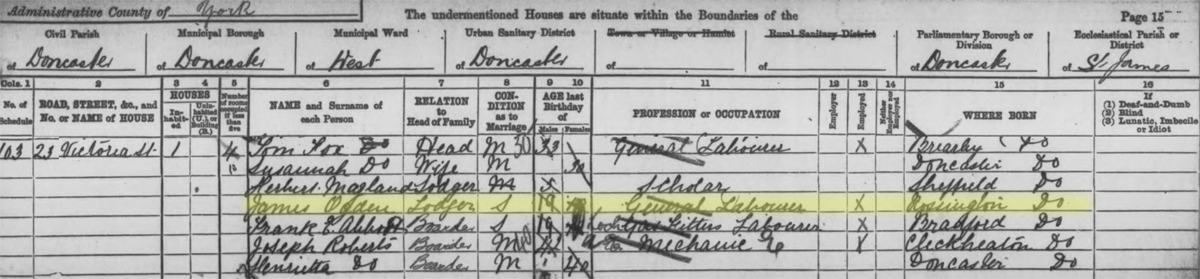 Administrative County of York The undermentioned Houses are situate within the Boundaries of the Page 15
Civil Parish Municipal Borough Municipal Ward Urban Sanitary District Town or Village or Hamlet Rural Sanitary District Parliamentary Borough or Division Ecclesiastical Parish or District
of Doncaster of Doncaster of West of Doncaster of of of Doncaster of St. James
Cols. 1 2 3 4 5 6 7 8 9 10 11 12 13 14 15 16
No. of Schedule ROAD, STREET, &c., and No. or NAME of HOUSE HOUSES Inhabited Uninhabited (U.) or Building (B.) Number of rooms occupied if less than five NAME and Surname of each Person RELATION to Head of Family CONDITION as to Marriage AGE last Birthday of Males Females PROFESSION or OCCUPATION Employer Employed Neither Employer nor Employed WHERE BORN If (1) Deaf-and-Dumb (2) Blind (3) Lunatic, Imbecile or Idiot
103 23 Victoria St. 1 4 Tom Fox Head M 33 General Labourer X Brearby Do
Susannah Do Wife M 30 Doncaster Do
Herbert Lodger Scholar Sheffield Do
James Ogden Lodger S 19 General Labourer X Rossington Do
Frank E. Abbott Boarder S 19 Gas Fitters Labourer X Bradford Do
Joseph Roberts Boarder M Mechanic X Cleckheaton Do
Henrietta Do Boarder M 40 Doncaster Do